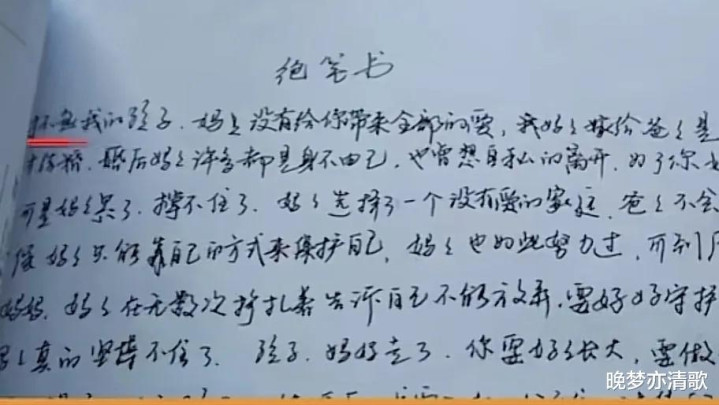 绝笔书
我的孩子.妈妈没有给你带来全部的爱,我妈妈嫁给爸爸是
婚.婚后妈妈许多都是身不由己.也曾想自私的离开.为了你
可是妈妈累了.撑不住了.妈妈选择了一个没有爱的家庭.爸爸不会
妈妈只能靠自己的方式来保护自己.妈妈也如此努力过,
妈妈.妈妈在无数次挣扎着告诉自己不能放弃.要好好守护
真的坚持不住了.孩子.妈妈走了.你要好好长大,要做
晚梦亦清歌